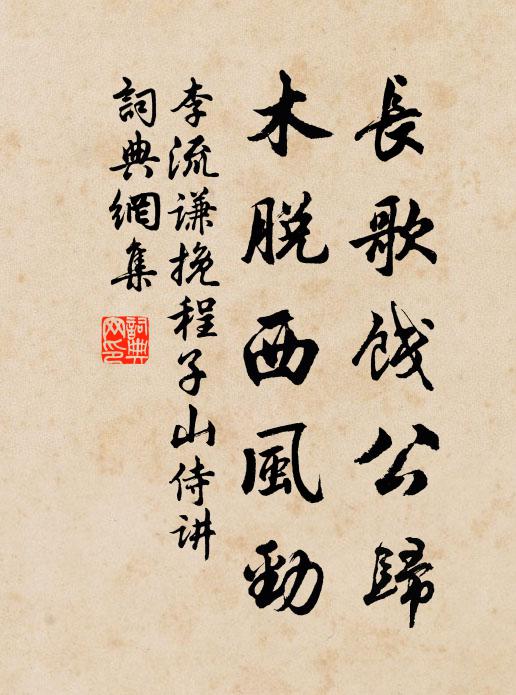 長歌餞公歸
木脱西風勁
李流謙挽程子山侍讲
詞典網集
詞典
网印